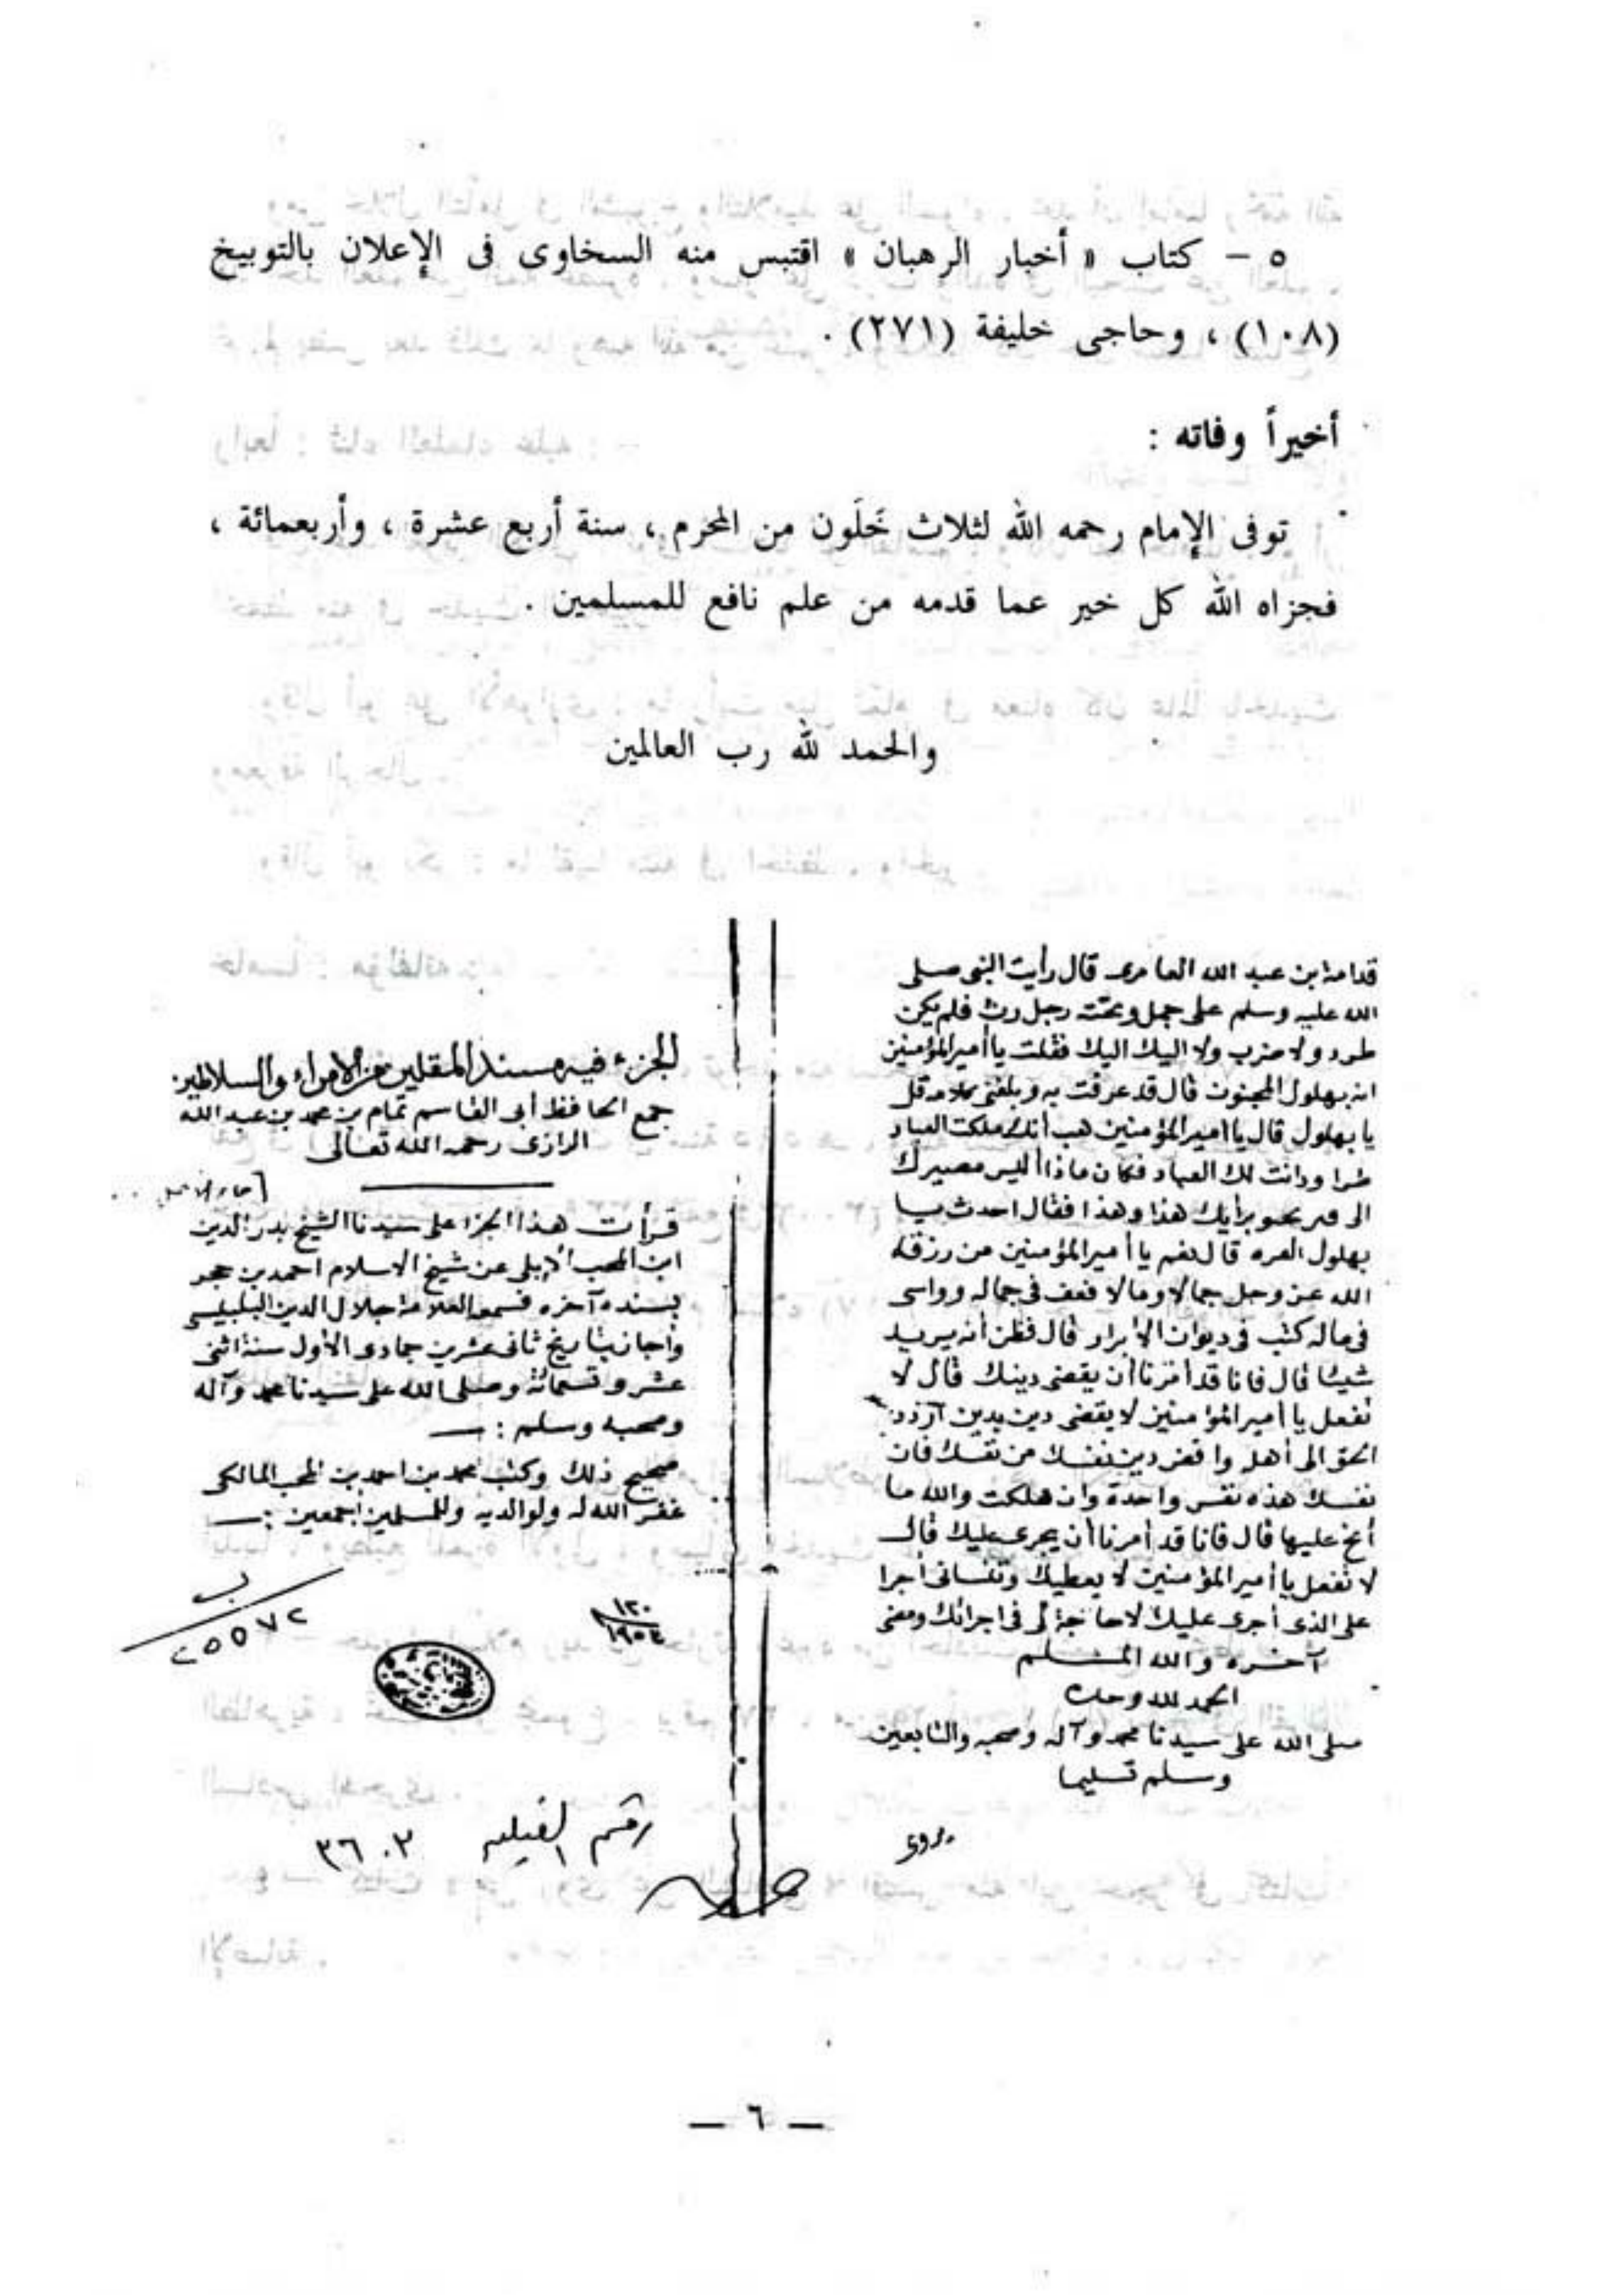 ٥ - كتاب « أخبار الرهبان » اقتبس منه السخاوى فى الإعلان بالتوبيخ
(١٠٨) ، وحاجى خليفة (٢٧١) .
أخيراً وفاته :
توفى الإمام رحمه الله لثلاث خَلَون من المحرم ، سنة أربع عشرة ، وأربعمائة ،
فجزاه الله كل خير عما قدمه من علم نافع للمسلمين .
والحمد لله رب العالمين
قدامة ابن عبد الله العامرى قال رأيت النبى صلى
الله عليه وسلم على جمل وتحته رجل رث فلم يكن
طرد ولا ضرب ولا اليك اليك فقلت يا أمير المؤمنين
انه بهلول المجنون قال قد عرفت به وبلغنى كلامه قل
يا بهلول قال يا أمير المؤمنين هب أنك ملكت العباد
طرا ودانت لك العباد فكان ماذا أليس مصيرك
الى هذا وهذا فقال احدث يا
بهلول قال نعم يا أمير المؤمنين من رزقه
الله عز وجل جمالا ومالا فعف فى جماله وواسى
فى ماله كتب فى ديوان الأبرار قال فظن أنه يريد
شيئا قال فانا قد أمرنا أن يقضى دينك قال لا
تفعل يا أمير المؤمنين لا يقضى دين بدين
الحق الى أهله واقض دين نفسك من نفسك فان
نفسك هذه نفس واحدة وان هلكت والله ما
عليها قال فانا قد أمرنا أن يجرى عليك قال
لا تفعل يا أمير المؤمنين لا يعطيك وتنسانى أجرا
على الذى أجرى عليك لا حاجة لى فى اجرائك ومضى
آخره والله
الحمد لله وحده
صلى الله على سيدنا محمد وآله وصحبه والتابعين
وسلم تسليما
الجزء فيه مسند المقلين من الأمراء والسلاطين
جمع الحافظ أبى القاسم تمام بن محمد بن عبد الله
الرازى رحمه الله تعالى
قرأت هذا الجزء على سيدنا الشيخ بدر الدين
ابن المحب عن شيخ الاسلام احمد بن حجر
بسنده آخره فسمعه العلامة جلال الدين البلبيسى
وأجاز بتاريخ ثانى عشرين جمادى الأول سنة اثنى
عشر وتسمائة وصلى الله على سيدنا محمد وآله
وصحبه وسلم :
صحيح ذلك وكتب محمد بن احمد بن المحب المالكى
غفر الله له ولوالديه وللمسلمين أجمعين :
ب
٢٥٥٧٢
رقم الفيلم ٣٦٠٢
— ٦ —